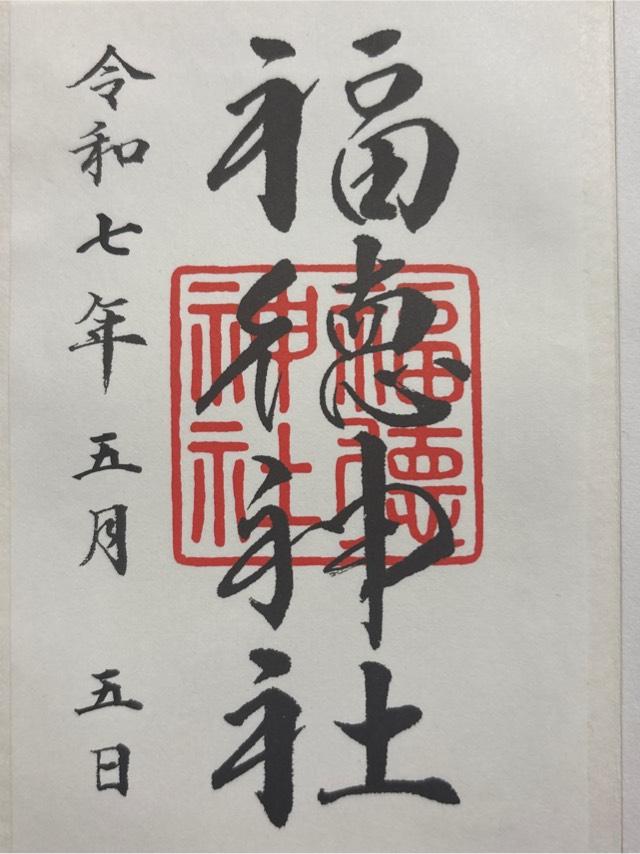 福徳神社
福德
神社
令和七年五月五日